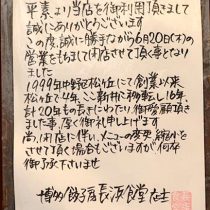 平素より当店を御利用頂きまして
誠にありがとうございます
この度、誠に勝手ながら6月20日(木)の
営業をもちまして閉店させて頂く事となり
ました
1999年中野区松が丘にて創業以来
松が丘で4年、ここ新井に移転し16年、
計20年もの長きにわたり、御愛顧頂き
ました事、厚く御礼申し上げます
尚、閉店に伴い、メニューの変更、縮小を
させて頂く場合もございますが何卒
御了承下さいませ
博多餃子房長浜食堂 店主